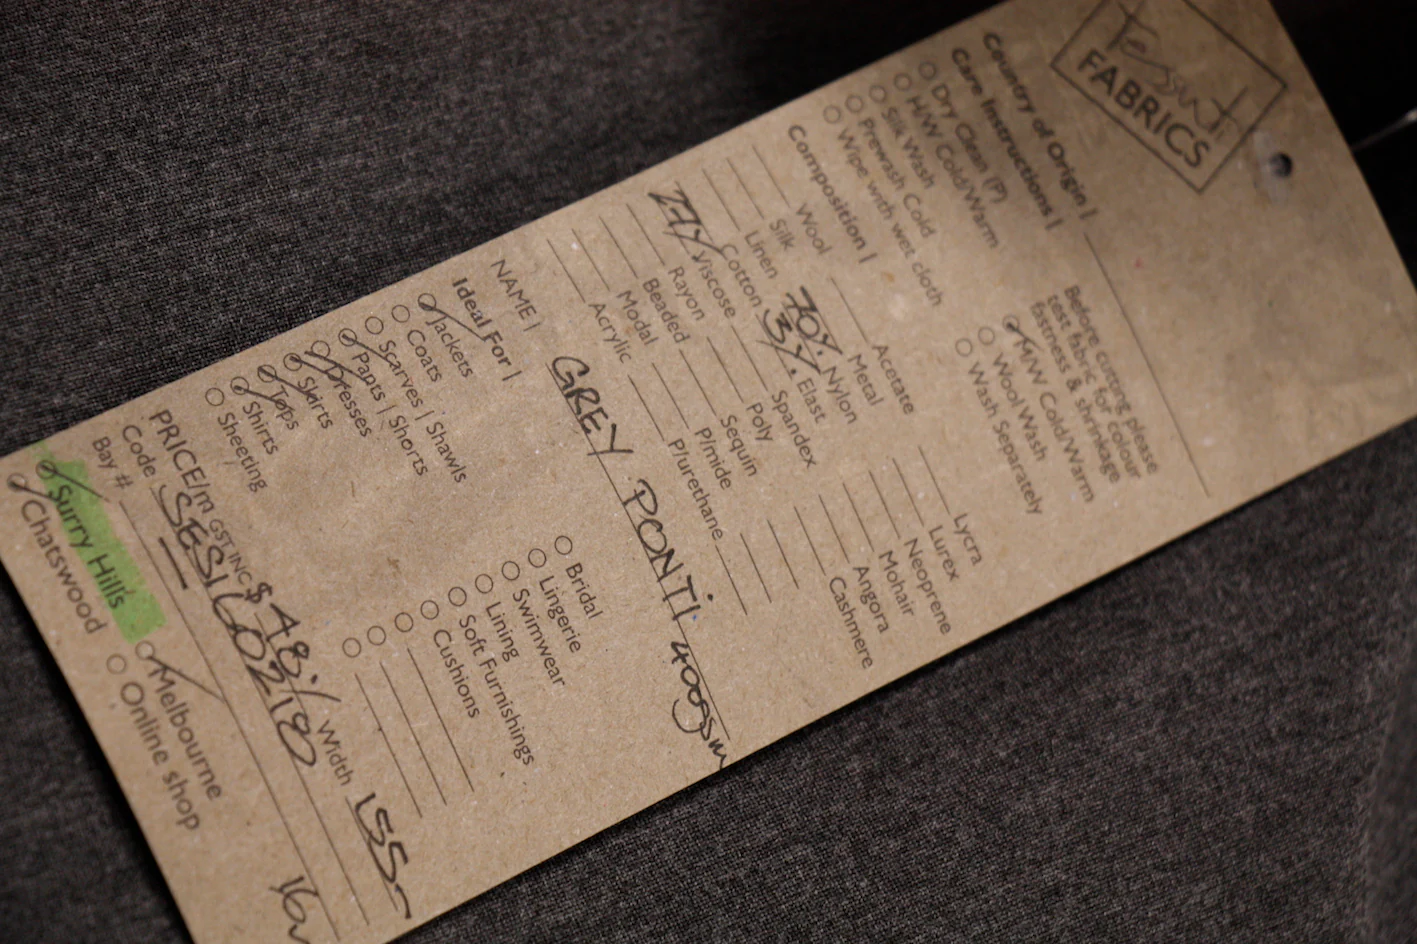 Tessuti
FABRICS
Country of Origin |
Care Instructions |
Dry Clean (P)
H/W Cold/Warm
Silk Wash
Prewash Cold
Wipe with wet cloth
Before cutting please
test fabric for colour
fastness & shrinkage
M/W Cold/Warm
Wool Wash
Wash Separately
Composition |
Wool
Silk
Linen
Cotton
Viscose
Rayon
Beaded
Modal
Acrylic
Acetate
Metal
70%. Nylon
3%. Elast
Spandex
Poly
Sequin
P/mide
P/urethane
Lycra
Lurex
Neoprene
Mohair
Angora
Cashmere
NAME | GREY PONTI 400gsm
Ideal For |
Jackets
Coats
Scarves | Shawls
Pants | Shorts
Dresses
Skirts
Tops
Shirts
Sheeting
Bridal
Lingerie
Swimwear
Lining
Soft Furnishings
Cushions
PRICE/m GST INC $48./ Width 155
Code SES1602180
Bay #
Surry Hills
Chatswood
Melbourne
Online shop